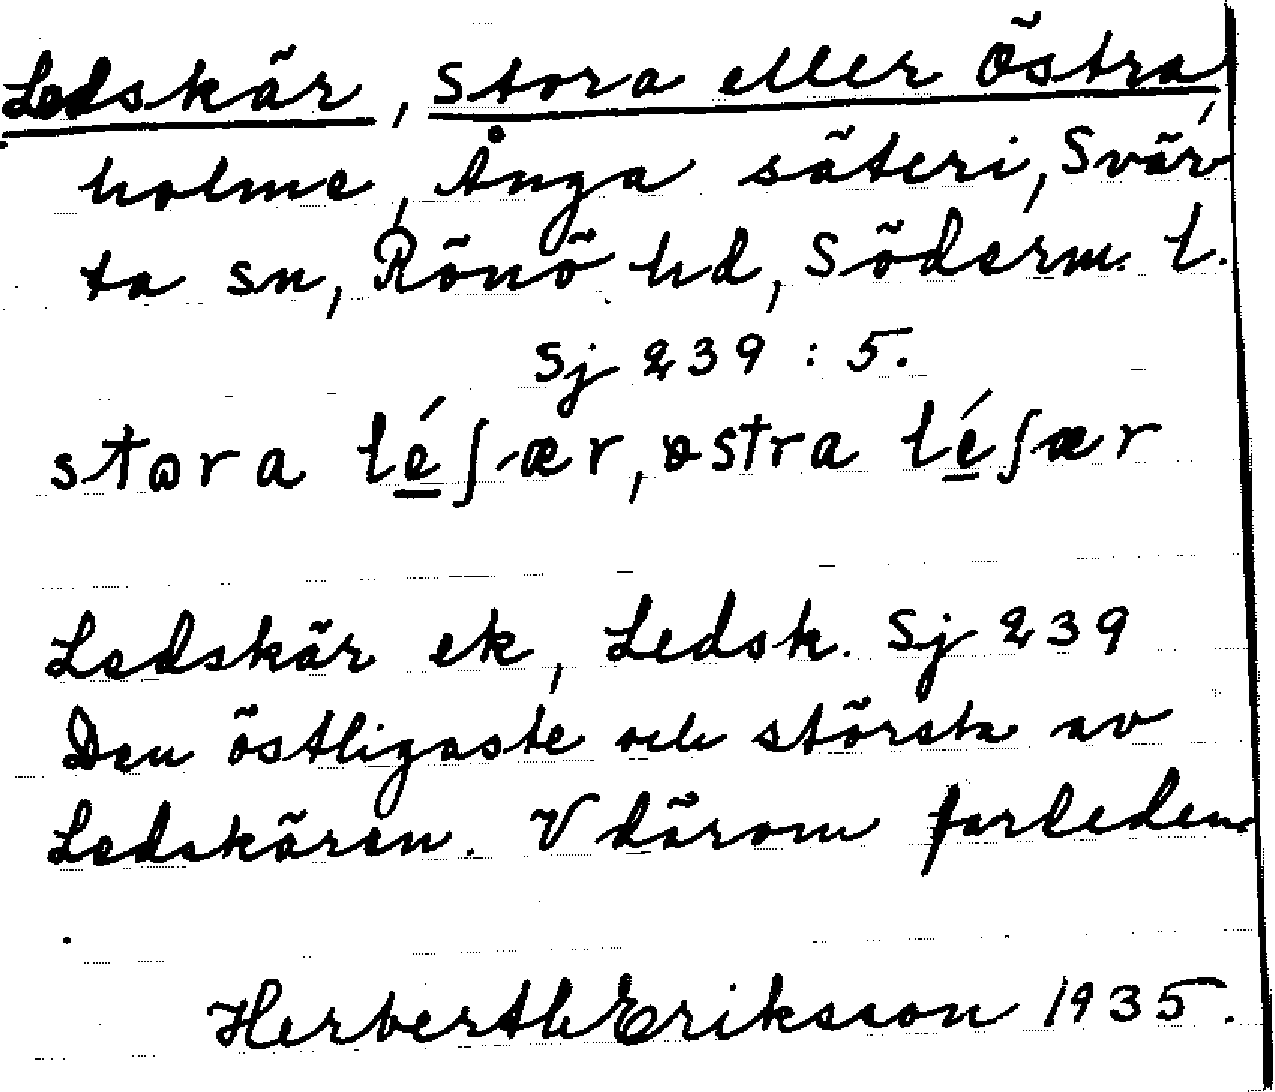 Ledskär, Stora eller Östra,
holme, Ånga säteri, Svär
ta sn, Rönö hd, Söderm. l.
Sj 239 : 5.
stora léʃær, østra léʃær
Ledskär ek, Ledsk. Sj 239
Den östligaste och största av
Ledskären. V därom farleden.
Herberth Eriksson 1935.